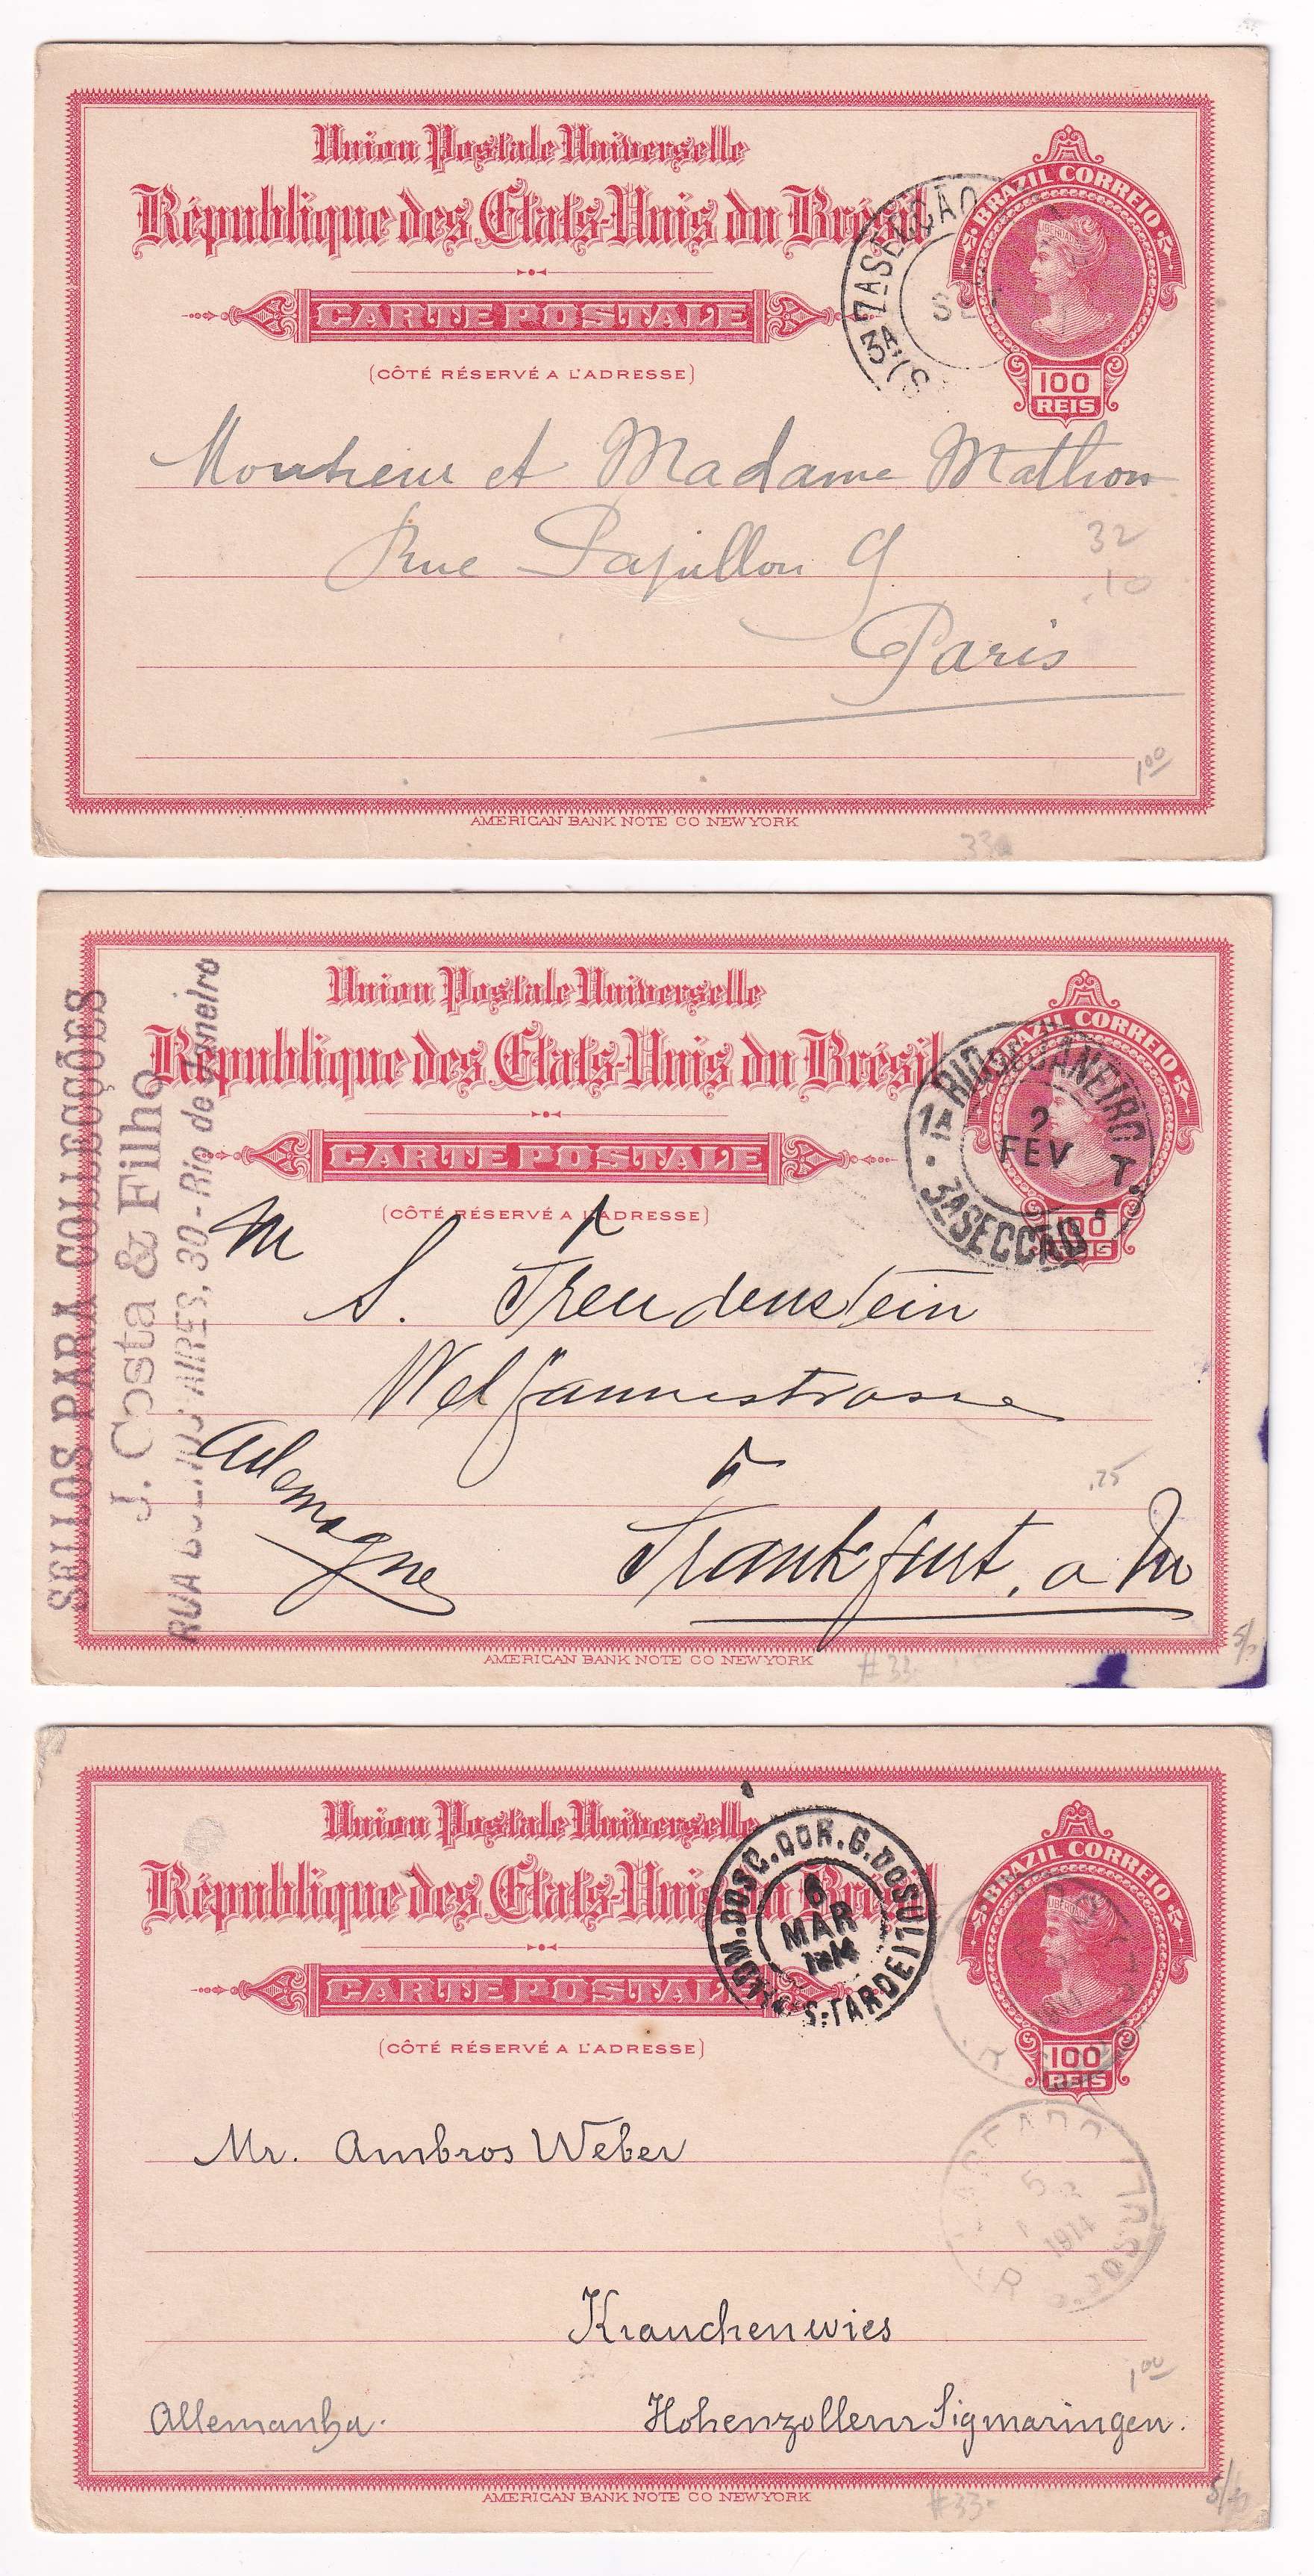 Union Postale Universelle
République des États-Unis du Brésil
BRAZIL CORREIO
LIBERDADE
3A SECÇÃO
CARTE POSTALE
100
REIS
(CÔTÉ RÉSERVÉ A L'ADRESSE)
Monsieur et Madame Mathon
Rue Papillon 9
32
10
Paris
1 00
AMERICAN BANK NOTE CO NEW YORK
33a
Union Postale Universelle
République des États-Unis du Brésil
BRAZIL CORREIO
RIO DE JANEIRO
1A
2
FEV
T.
3A SECCÃO
CARTE POSTALE
100
REIS
(CÔTÉ RÉSERVÉ A L'ADRESSE)
SELLOS PARA COLLECÇÕES
J. Costa & Filho
RUA BUENOS AIRES, 30 - Rio de Janeiro
M
S. Freudenstein
Allemagne
.25
Frankfurt, a M
AMERICAN BANK NOTE CO NEW YORK
#33
Union Postale Universelle
République des États-Unis du Brésil
BRAZIL CORREIO
LIBERDADE
ADM. DOS C. DO R. G. DO SUL
6
MAR
1914
TARDE
CARTE POSTALE
100
REIS
(CÔTÉ RÉSERVÉ A L'ADRESSE)
5
1914
Mr. Ambros Weber
Krauchenwies
1 00
Allemanha.
Hohenzollern Sigmaringen.
AMERICAN BANK NOTE CO NEW YORK
#33